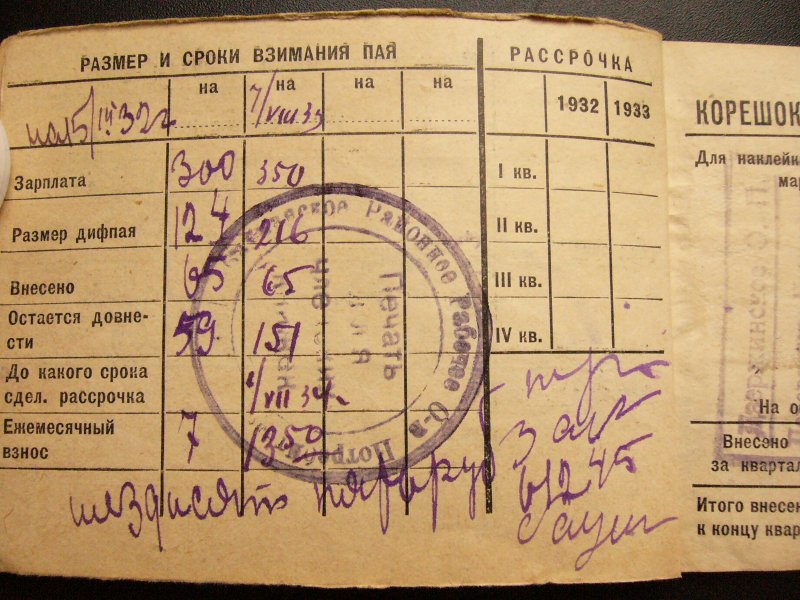 РАЗМЕР И СРОКИ ВЗИМАНИЯ ПАЯ
на на на на
7/VIII 33
5/III 32г
Зарплата 300 350
Размер дифпая 124 216
Внесено 65 65
Остается довне-
сти 59 151
До какого срока
сдел. рассрочка 1/VII 34г.
Ежемесячный
взнос 7 1350
РАССРОЧКА
1932 1933
I кв.
II кв.
III кв.
IV кв.
61245
Районное Рабочее О-в
Печать
для
КОРЕШОК
Для наклейк
мар
Дзержинское
На о
Внесено
за квартал
Итого внесен
к концу квар